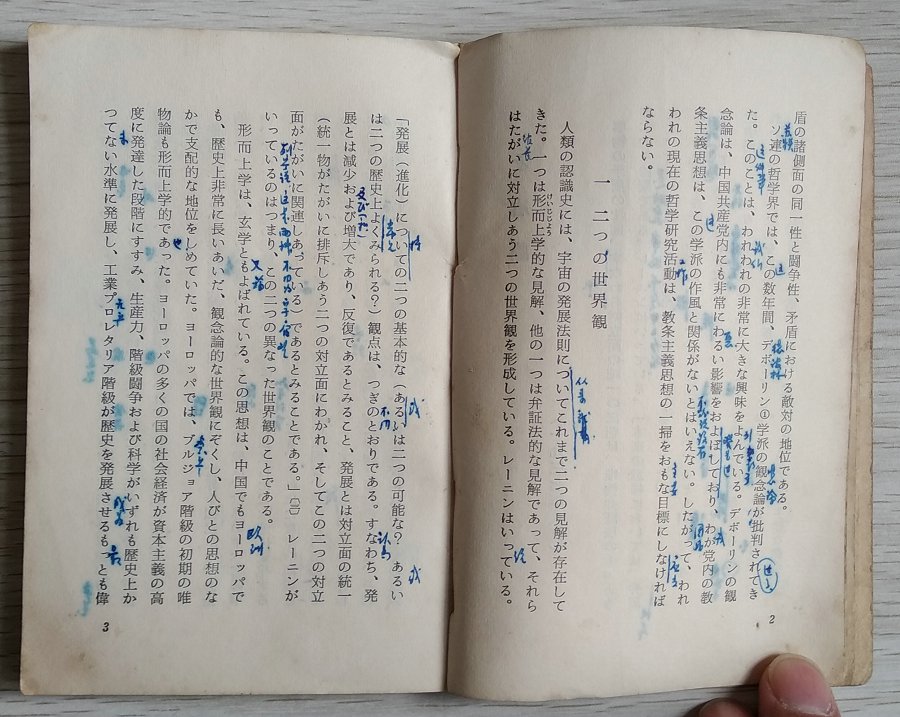 盾の諸側面の同一性と闘争性、矛盾における敵対の地位である。
ソ連の哲学界では、この数年間、デボーリン①学派の観念論が批判されてき
た。このことは、われわれの非常に大きな興味をよんでいる。デボーリンの観
念論は、中国共産党内にも非常にわるい影響をおよぼしており、わが党内の教
条主義思想は、この学派の作風と関係がないとはいえない。したがって、われ
われの現在の哲学研究活動は、教条主義思想の一掃をおもな目標にしなければ
ならない。
一 二つの世界観
人類の認識史には、宇宙の発展法則についてこれまで二つの見解が存在して
きた。一つは形而上学的な見解、他の一つは弁証法的な見解であって、それら
けいじじょう
はたがいに対立しあう二つの世界観を形成している。レーニンはいっている。
2
「発展(進化)についての二つの基本的な(あるいは二つの可能な? あるい
は二つの歴史上よくみられる?)観点は、つぎのとおりである。すなわち、発
展とは減少および増大であり、反復であるとみること、発展とは対立面の統一
(統一物がたがいに排斥しあう二つの対立面にわかれ、そしてこの二つの対立
面がたがいに関連しあっている)であるとみることである。」〔二〕 レーニンが
いっているのはつまり、この二つの異なった世界観のことである。
形而上学は、玄学ともよばれている。この思想は、中国でもヨーロッパで
も、歴史上非常に長いあいだ、観念論的な世界観にぞくし、人びとの思想のな
かで支配的な地位をしめていた。ヨーロッパでは、ブルジョア階級の初期の唯
物論も形而上学的であった。ヨーロッパの多くの国の社会経済が資本主義の高
度に発達した段階にすすみ、生産力、階級闘争および科学がいずれも歴史上か
つてない水準に発展し、工業プロレタリア階級が歴史を発展させるもっとも偉
3
这
工作
主要
或
不同
或
又称
欧洲